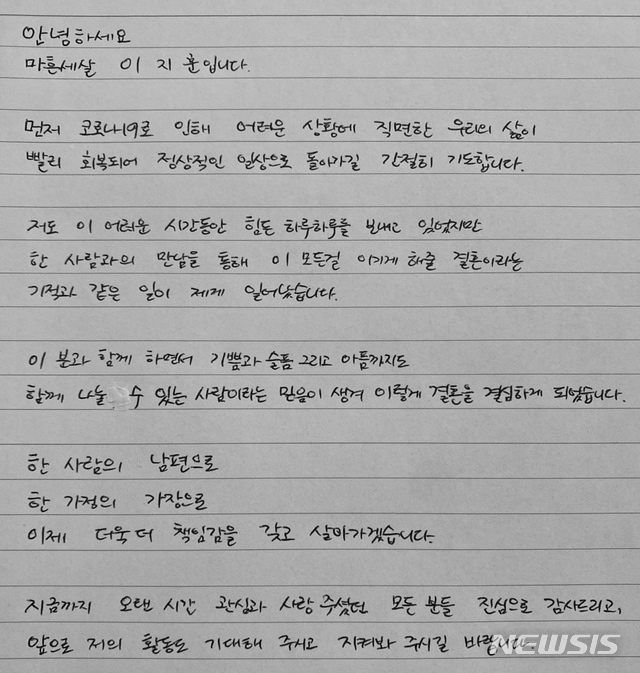 안녕하세요
마흔세살 이 지 훈입니다.
먼저 코로나19로 인해 어려운 상황에 직면한 우리의 삶이
빨리 회복되어 정상적인 일상으로 돌아가길 간절히 기도합니다.
저도 이 어려운 시간동안 힘든 하루하루를 보내고 있었지만
한 사람과의 만남을 통해 이 모든걸 이기게 해줄 결혼이라는
기적과 같은 일이 제게 일어났습니다.
이 분과 함께 하면서 기쁨과 슬픔 그리고 아픔까지도
함께 나눌 수 있는 사람이라는 믿음이 생겨 이렇게 결혼을 결심하게 되었습니다.
한 사람의 남편으로
한 가정의 가장으로
이제 더욱 더 책임감을 갖고 살아가겠습니다.
지금까지 오랜 시간 관심과 사랑 주셨던 모든 분들 진심으로 감사드리고,
앞으로 저의 활동도 기대해 주시고 지켜봐 주시길 바랍니다.
NEWSIS